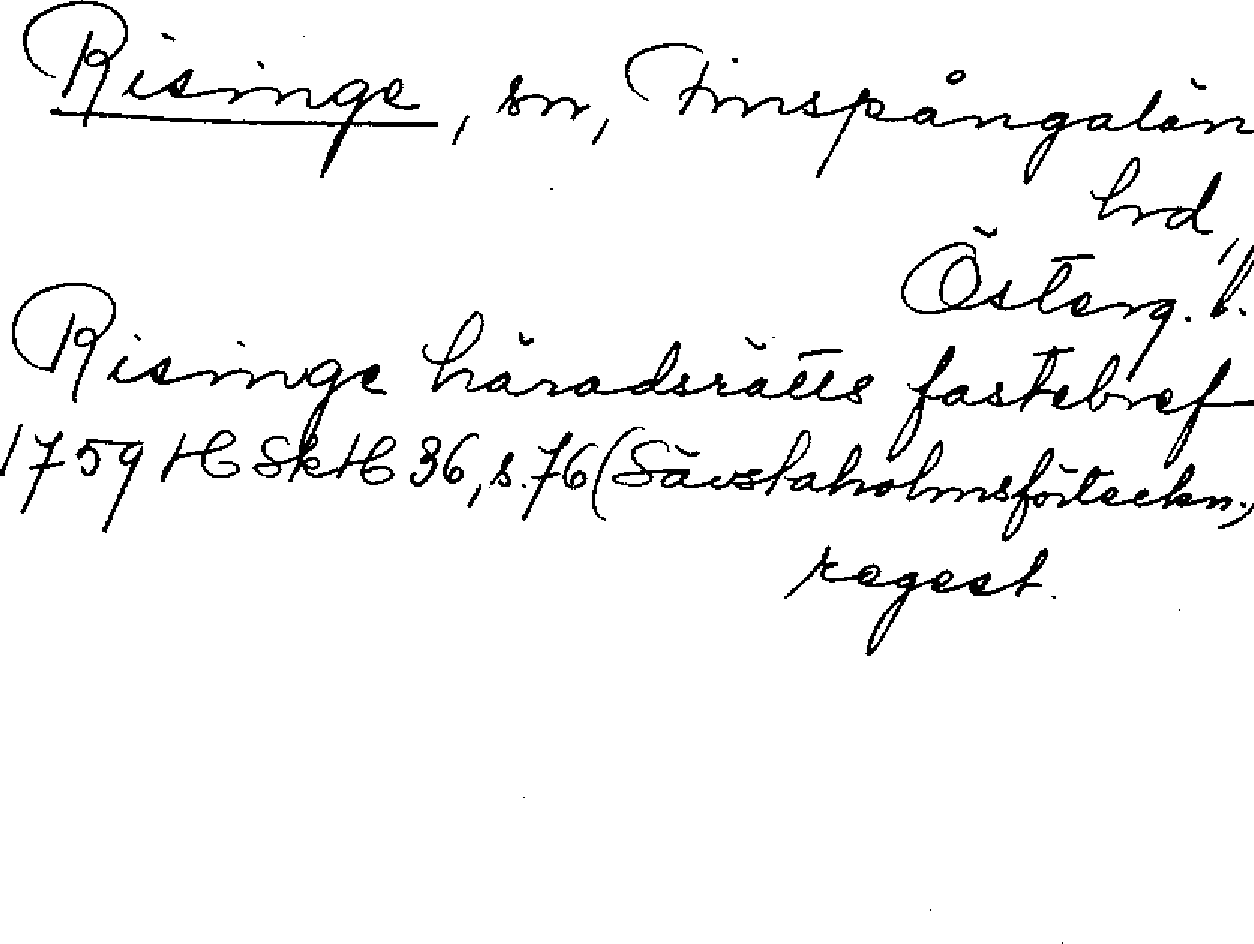 Risinge, sn, Finspångalän
hrd,
Österg. l.
Risinge häradsrätts fastebref
1759 H Sk H 36, s. 76 (Sävstaholmsförteckn.,
regest.